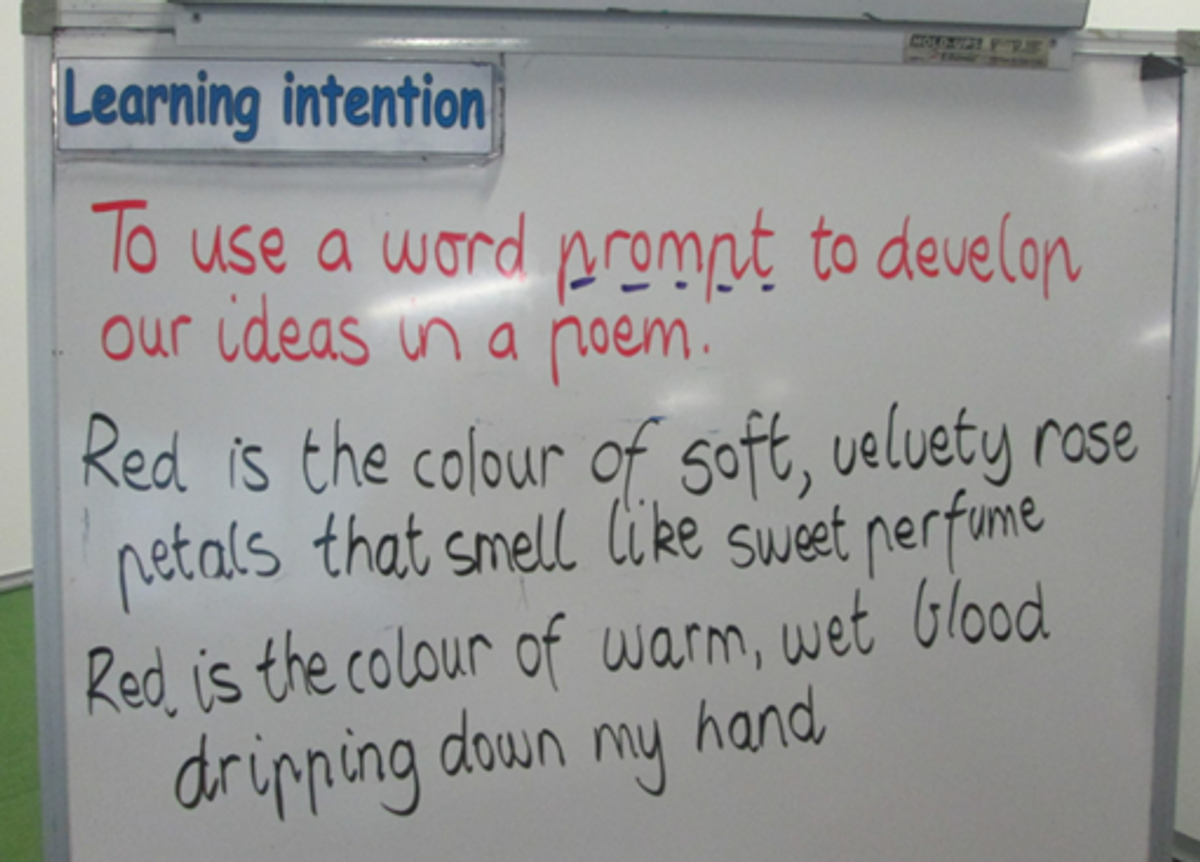 HOLD-UPS
Learning intention
To use a word prompt to develop
our ideas in a poem.
Red is the colour of soft, velvety rose
petals that smell like sweet perfume
Red is the colour of warm, wet blood
dripping down my hand